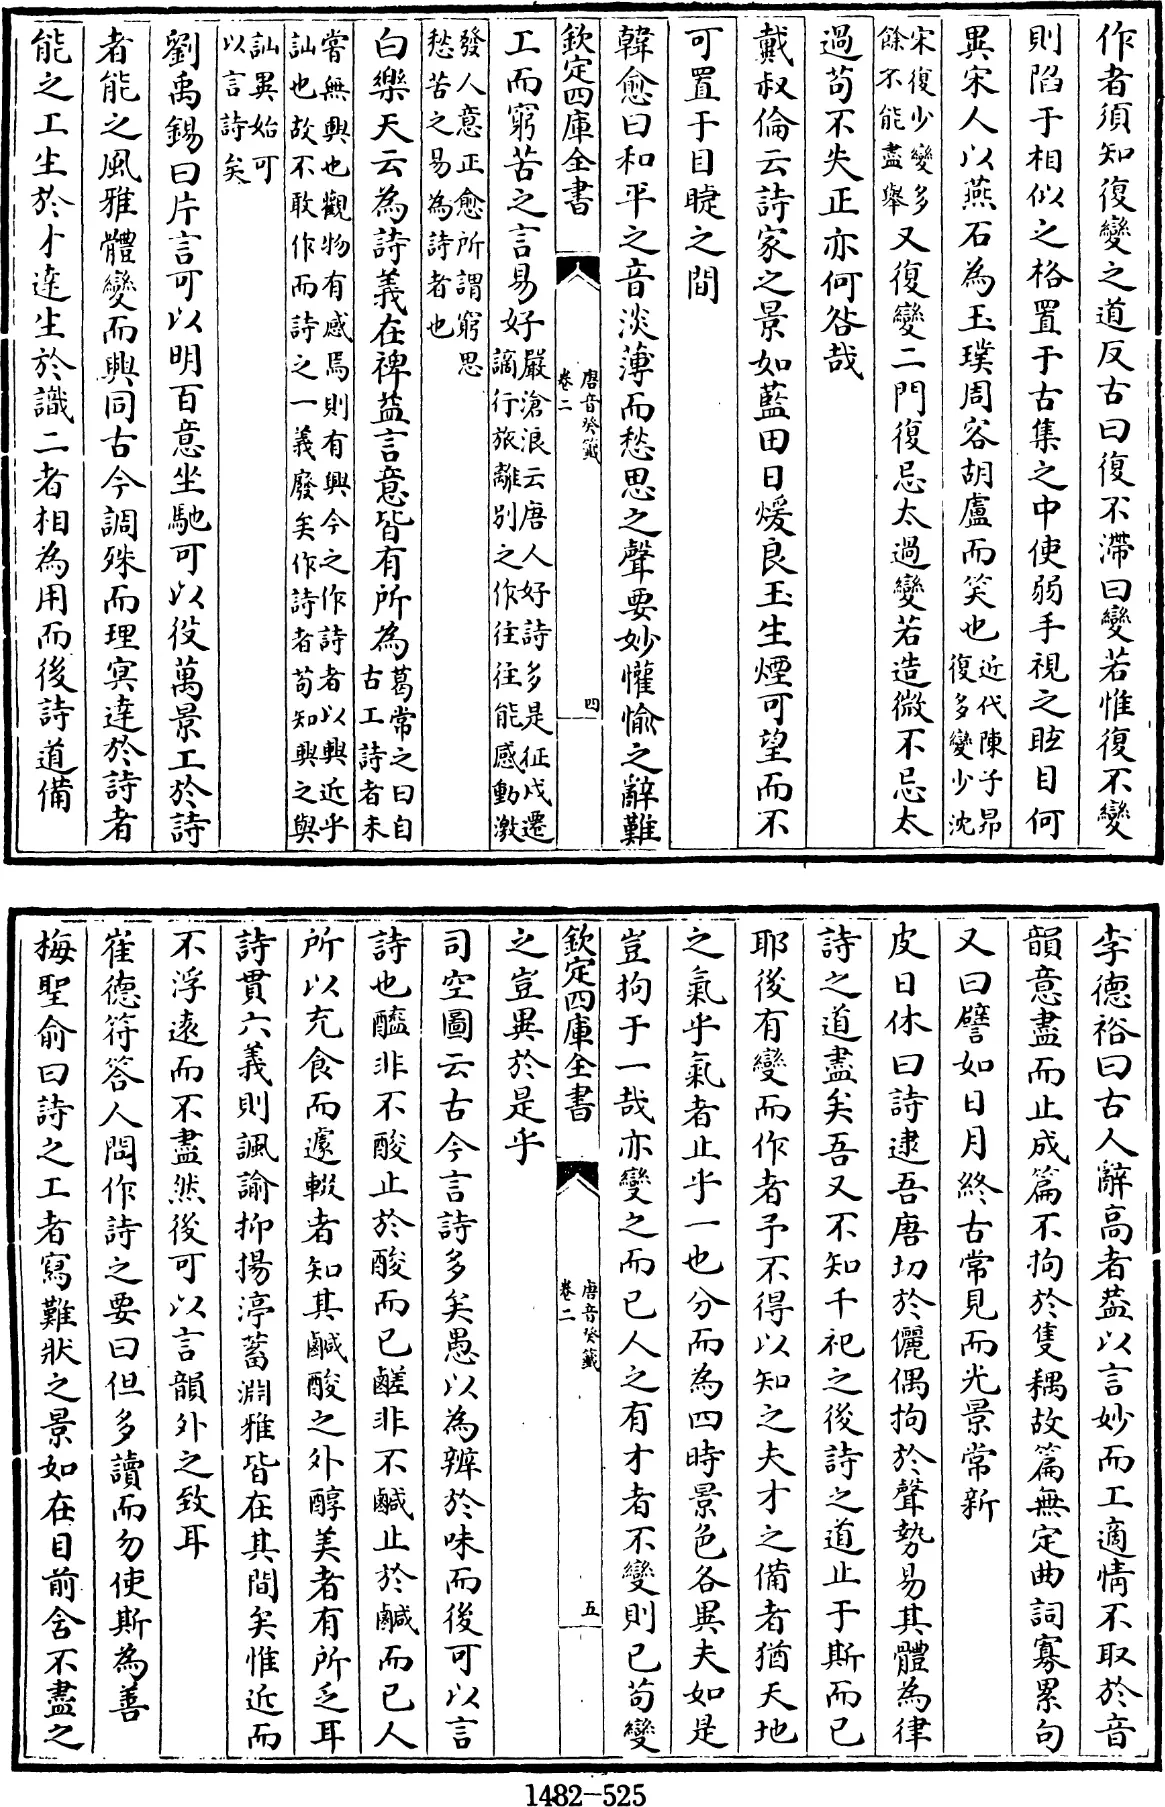 作者須知復變之道反古曰復不滯曰變若惟復不變
則陷于相似之格置于古集之中使弱手視之眩目何
異宋人以燕石為玉璞周客胡盧而笑也近代陳子昂復多變少沈
宋復少變多餘不能盡舉又復變二門復忌太過變若造微不忌太
過苟不失正亦何咎哉
戴叔倫云詩家之景如藍田日煖良玉生煙可望而不
可置于目睫之間
韓愈曰和平之音淡薄而愁思之聲要妙懽愉之辭難
欽定四庫全書
唐音癸籤
卷二
四
工而窮苦之言易好嚴滄浪云唐人好詩多是征戍遷謫行旅離別之作往往能感動激
發人意正愈所謂窮思愁苦之易為詩者也
白樂天云為詩義在裨益言意皆有所為葛常之曰自古工詩者未
嘗無興也觀物有感焉則有興今之作詩者以興近乎訕也故不敢作而詩之一義廢矣作詩者苟知興之與
訕異始可以言詩矣
劉禹錫曰片言可以明百意坐馳可以役萬景工於詩
者能之風雅體變而興同古今調殊而理冥達於詩者
能之工生於才達生於識二者相為用而後詩道備
李德裕曰古人辭高者葢以言妙而工適情不取於音
韻意盡而止成篇不拘於隻耦故篇無定曲詞寡累句
又曰譬如日月終古常見而光景常新
皮日休曰詩逮吾唐切於儷偶拘於聲勢易其體為律
詩之道盡矣吾又不知千祀之後詩之道止于斯而已
耶後有變而作者予不得以知之夫才之備者猶天地
之氣乎氣者止乎一也分而為四時景色各異夫如是
豈拘于一哉亦變之而已人之有才者不變則已苟變
欽定四庫全書
唐音癸籤
卷二
五
之豈異於是乎
司空圖云古今言詩多矣愚以為辨於味而後可以言
詩也醯非不酸止於酸而已鹺非不鹹止於鹹而已人
所以充食而遽輟者知其鹹酸之外醇美者有所乏耳
詩貫六義則諷諭抑揚渟蓄淵雅皆在其間矣惟近而
不浮遠而不盡然後可以言韻外之致耳
崔德符答人問作詩之要曰但多讀而勿使斯為善
梅聖俞曰詩之工者寫難狀之景如在目前含不盡之
1482—525